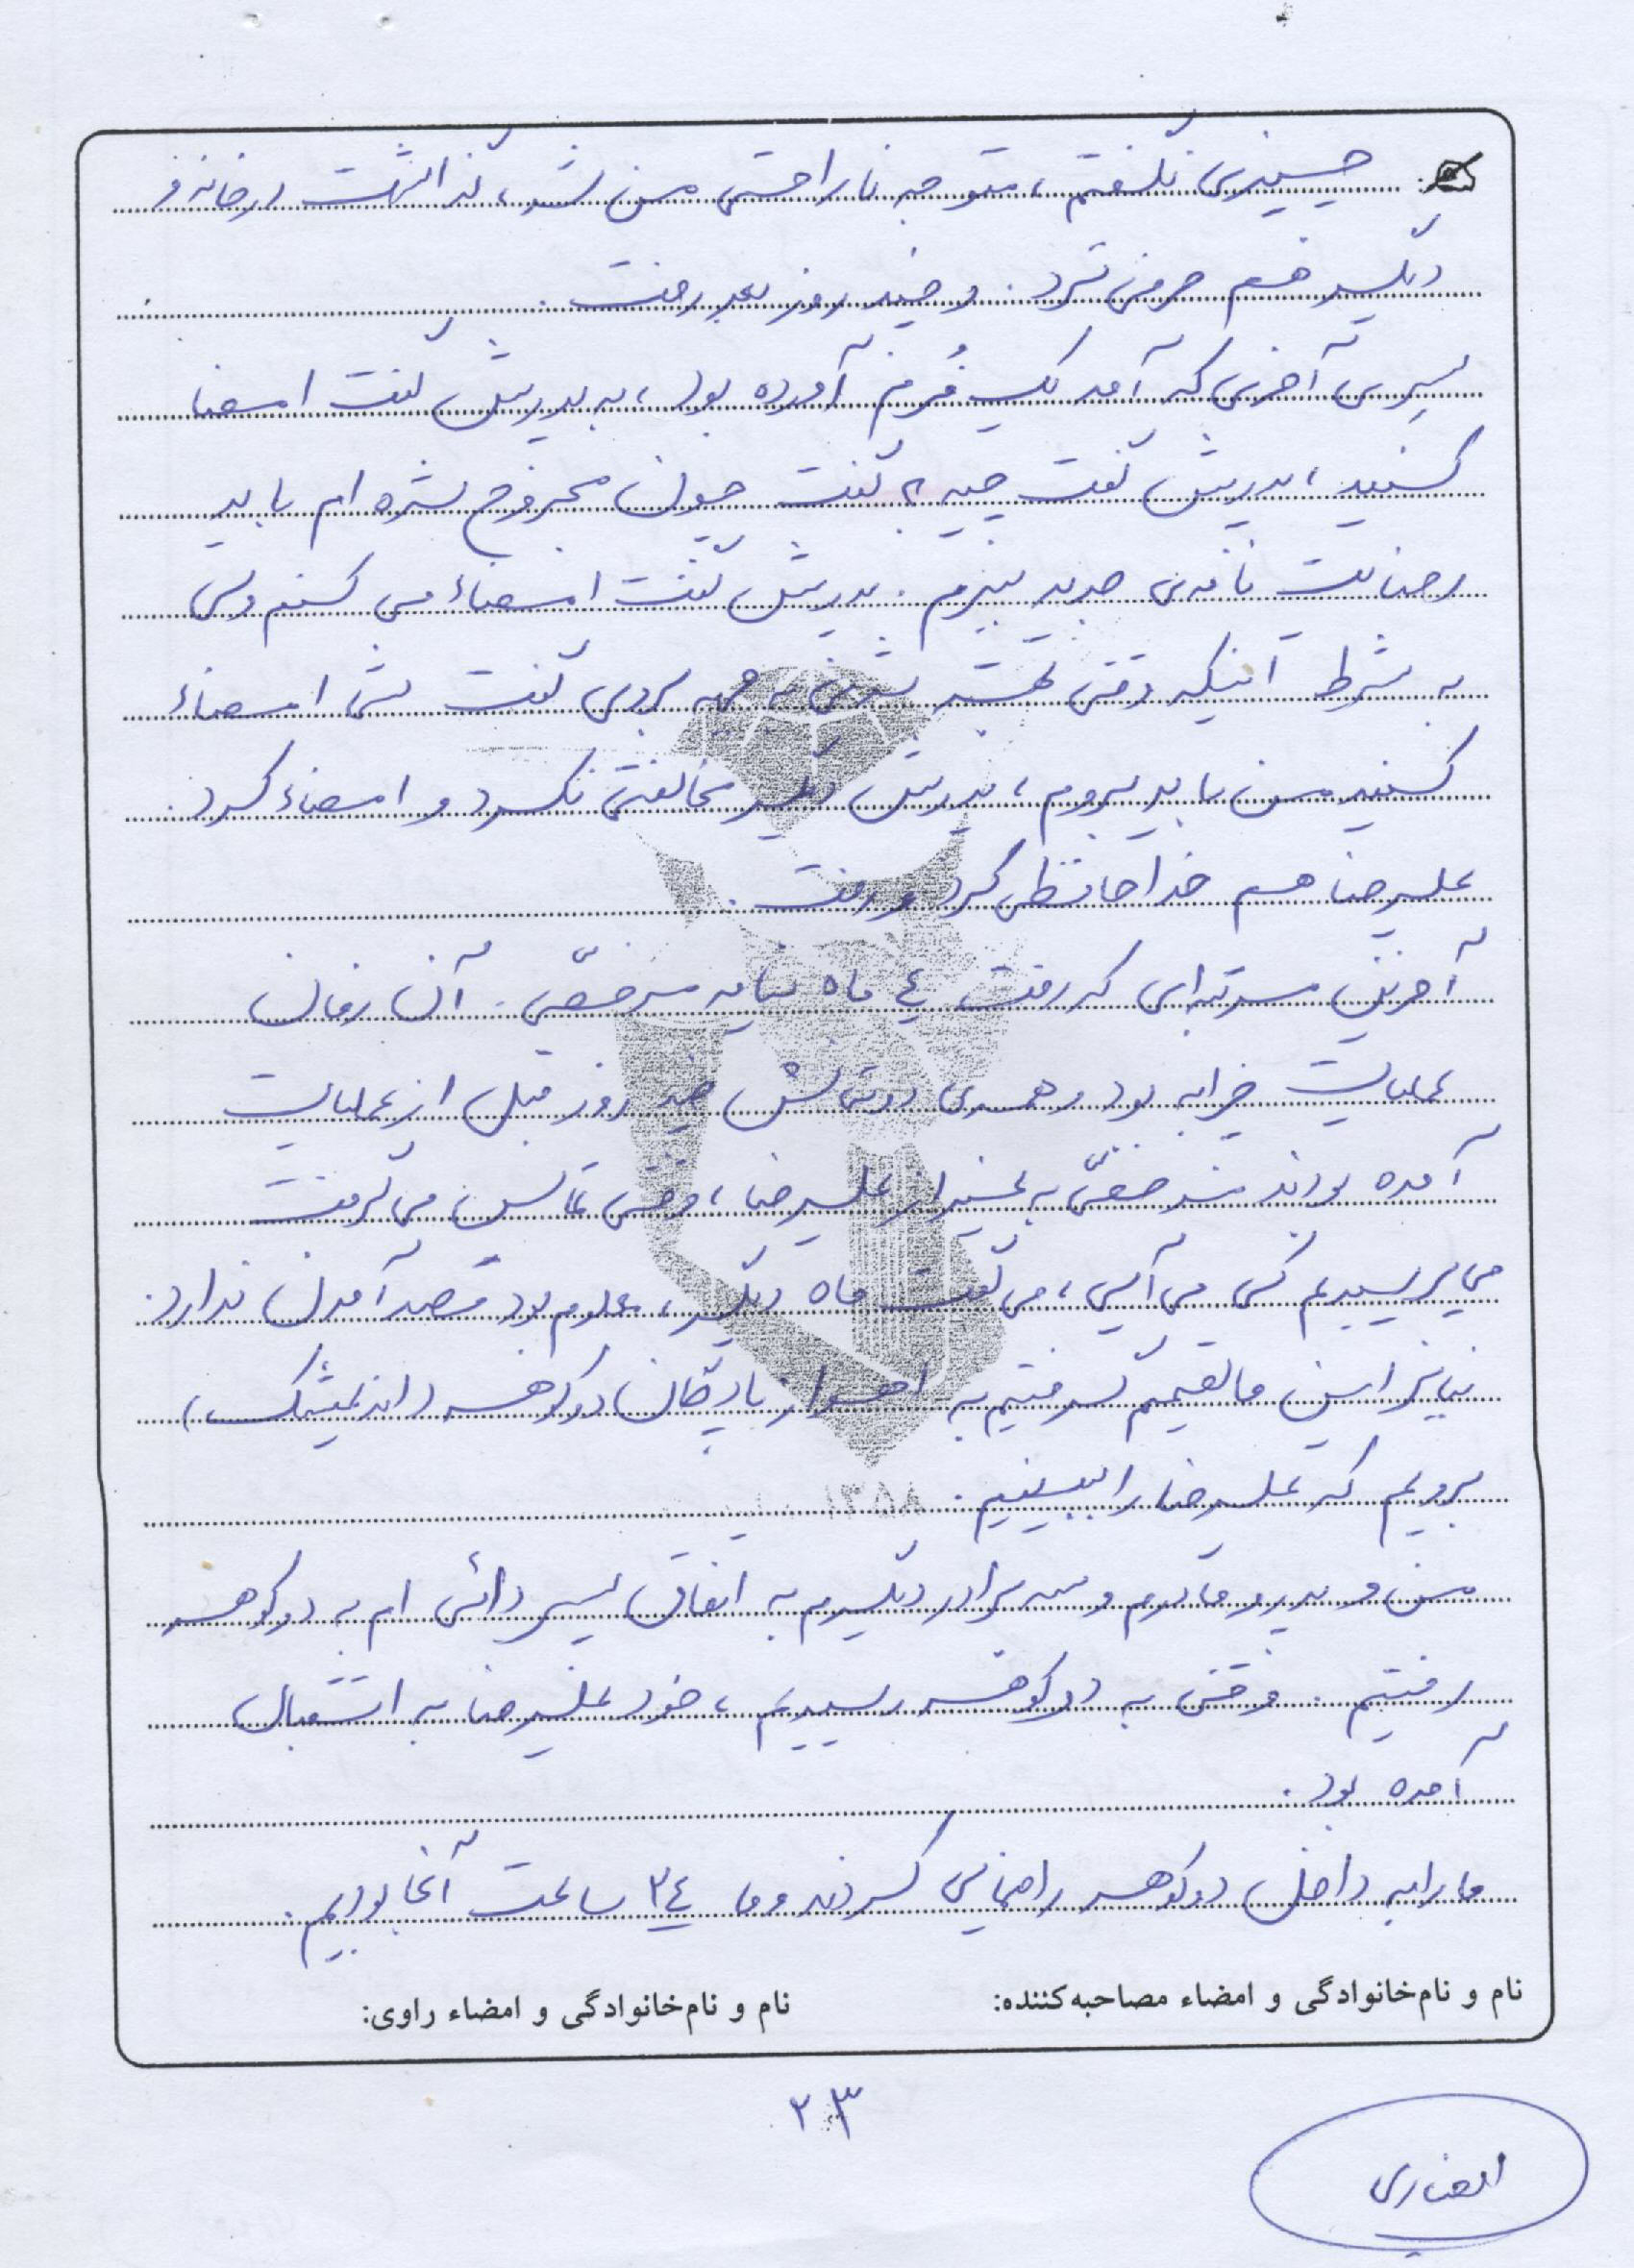 چیزی نگفتم، متوجه ناراحتی من شد، گذاشت در خانه و
دیگر هم حرفی نزد. و چند روز بعد رفت.
سری آخری که آمد یک فُرم آورده بود، به پدرش گفت امضا
کنید، پدرش گفت چیه؟ گفت چون مجروح شده ام باید
رضایت نامه‌ی جدید ببرم. پدرش گفت امضاء می کنم ولی
به شرط اینکه وقتی بهتر شدی به جبهه بروی گفت نه امضاء
کنید من باید بروم، پدرش دیگر مخالفتی نکرد و امضاء کرد.
علیرضا هم خداحافظی کرد و رفت.
آخرین مرتبه‌ای که رفت ٤ ماه نیامد مرخصّی. آن زمان
عملیات خیبر بود و همه‌ی دوستانش چند روز قبل از عملیات
آمده بودند مرخصّی به غیر از علیرضا، وقتی تماس می گرفت
می پرسیدیم کی می آیی، می گفت ماه دیگر، معلوم بود قصد آمدن ندارد.
بنابراین ما تصمیم گرفتیم به اهواز پادگان دوکوهه (اندیمشک)
برویم که علیرضا را ببینیم.
من و پدر و مادرم و سه برادر دیگرم به اتفاق پسر دائی ام به دوکوهه
رفتیم. وقتی به دوکوهه رسیدیم، خود علیرضا به استقبال
آمده بود.
ما را به داخل دوکوهه راهنمایی کردند و ما ٢٤ ساعت آنجا بودیم.
نام و نام‌خانوادگی و امضاء مصاحبه‌کننده:
نام و نام‌خانوادگی و امضاء راوی:
۲۳
انصاری
۱۳۵۸